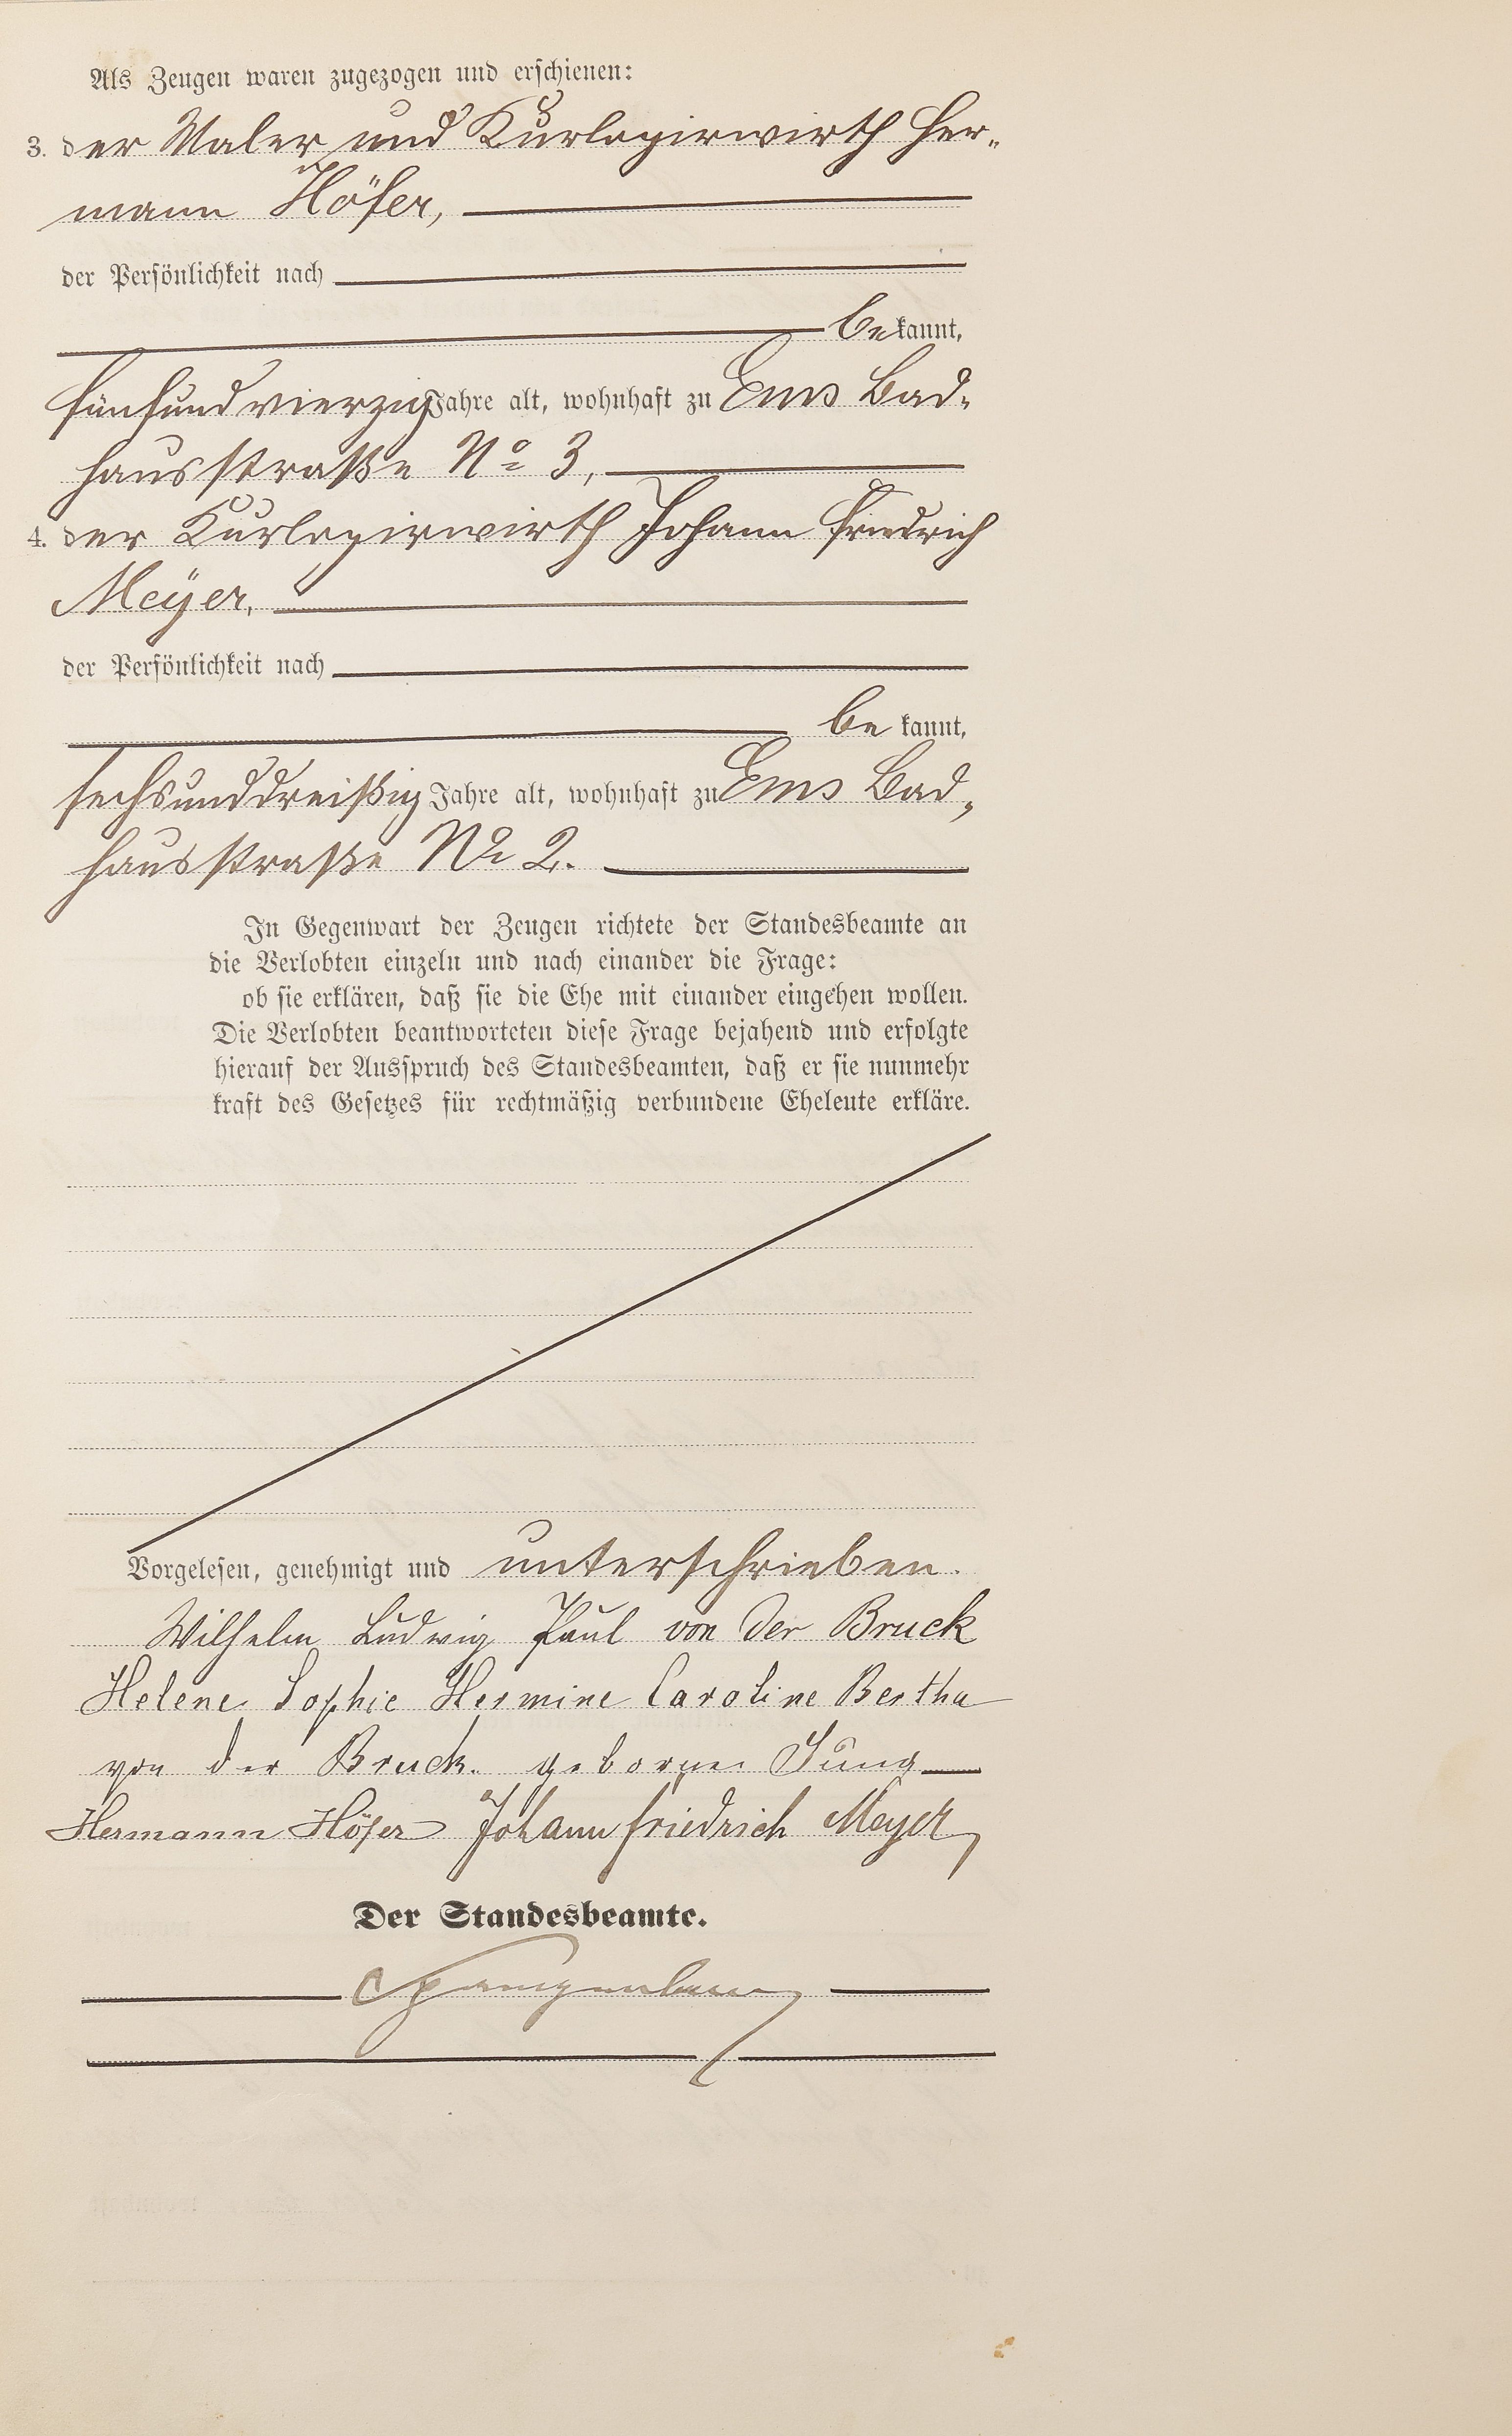 Als Zeugen waren zugezogen und erschienen:
3. der Maler und Kurlogirwirth Her-
mann Höfer,
der Persönlichkeit nach
bekannt,
fünfundvierzig Jahre alt, wohnhaft zu Ems Bad-
hausstraße No 3,
4. der Kurlogirwirth Johann Friedrich
Meÿer,
der Persönlichkeit nach
be kannt,
sechsunddreißig Jahre alt, wohnhaft zu Ems Bad-
hausstraße No 2.
In Gegenwart der Zeugen richtete der Standesbeamte an
die Verlobten einzeln und nach einander die Frage:
ob sie erklären, daß sie die Ehe mit einander eingehen wollen.
Die Verlobten beantworteten diese Frage bejahend und erfolgte
hierauf der Ausspruch des Standesbeamten, daß er sie nunmehr
kraft des Gesetzes für rechtmäßig verbundene Eheleute erkläre.
Vorgelesen, genehmigt und unterschrieben.
Wilhelm Ludwig Paul von der Bruck
Helene Sophie Hermine Caroline Bertha
von der Bruck. geborene Jung
Hermann Höfer Johann Friedrich Meyer
Der Standesbeamte.